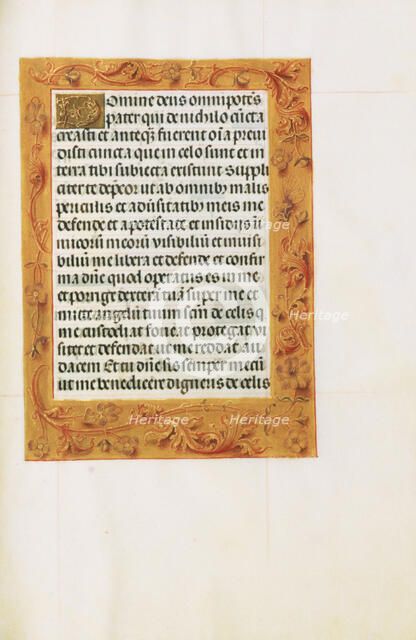 Domine deus omnipotēs
pater qui de nichilo cūcta
creasti et anteqȝ fuerent oīa previ
disti cuncta que in celo sunt et in
terra tibi subiecta existunt Suppli
citer te dep̄cor ut ab omnibꝰ malis
periculis et adūsitatibꝰ meis me
defende et a potestate et insidijs ini
micorū meorū visibiliū et invisi
biliū me libera et defende et confir
ma dn̄e quod operatus es in me
et porrige dexterā tuā super me et
mitte angelū tuum scm̄ de celis q
me custodiat foveat protegat vi
sitet et defendat ut me reddat au
dacem Et tu dn̄e sis semper mecū
ut me benedicere digneris de celis
Heritage
Heritage
Heritage
Heritage
Heritage
Heritage